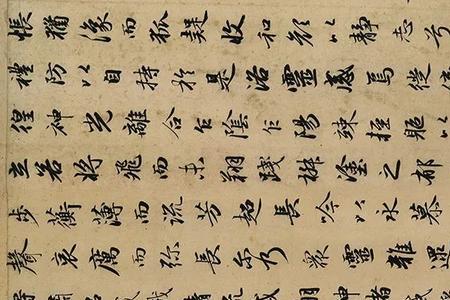 悵猶豫而狐疑收和顏以靜志兮
禮防以自持於是洛靈感焉徙
徨神光離合乍陰乍陽竦輕軀以
立若將飛而未翔踐椒塗之郁
步蘅薄而流芳超長吟以永慕
聲哀厲而弥長眾靈雜遝